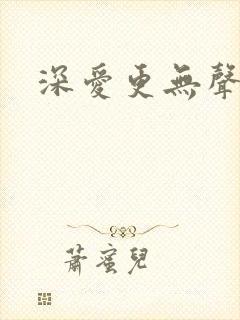 深愛更無聲
蕭蜜兒